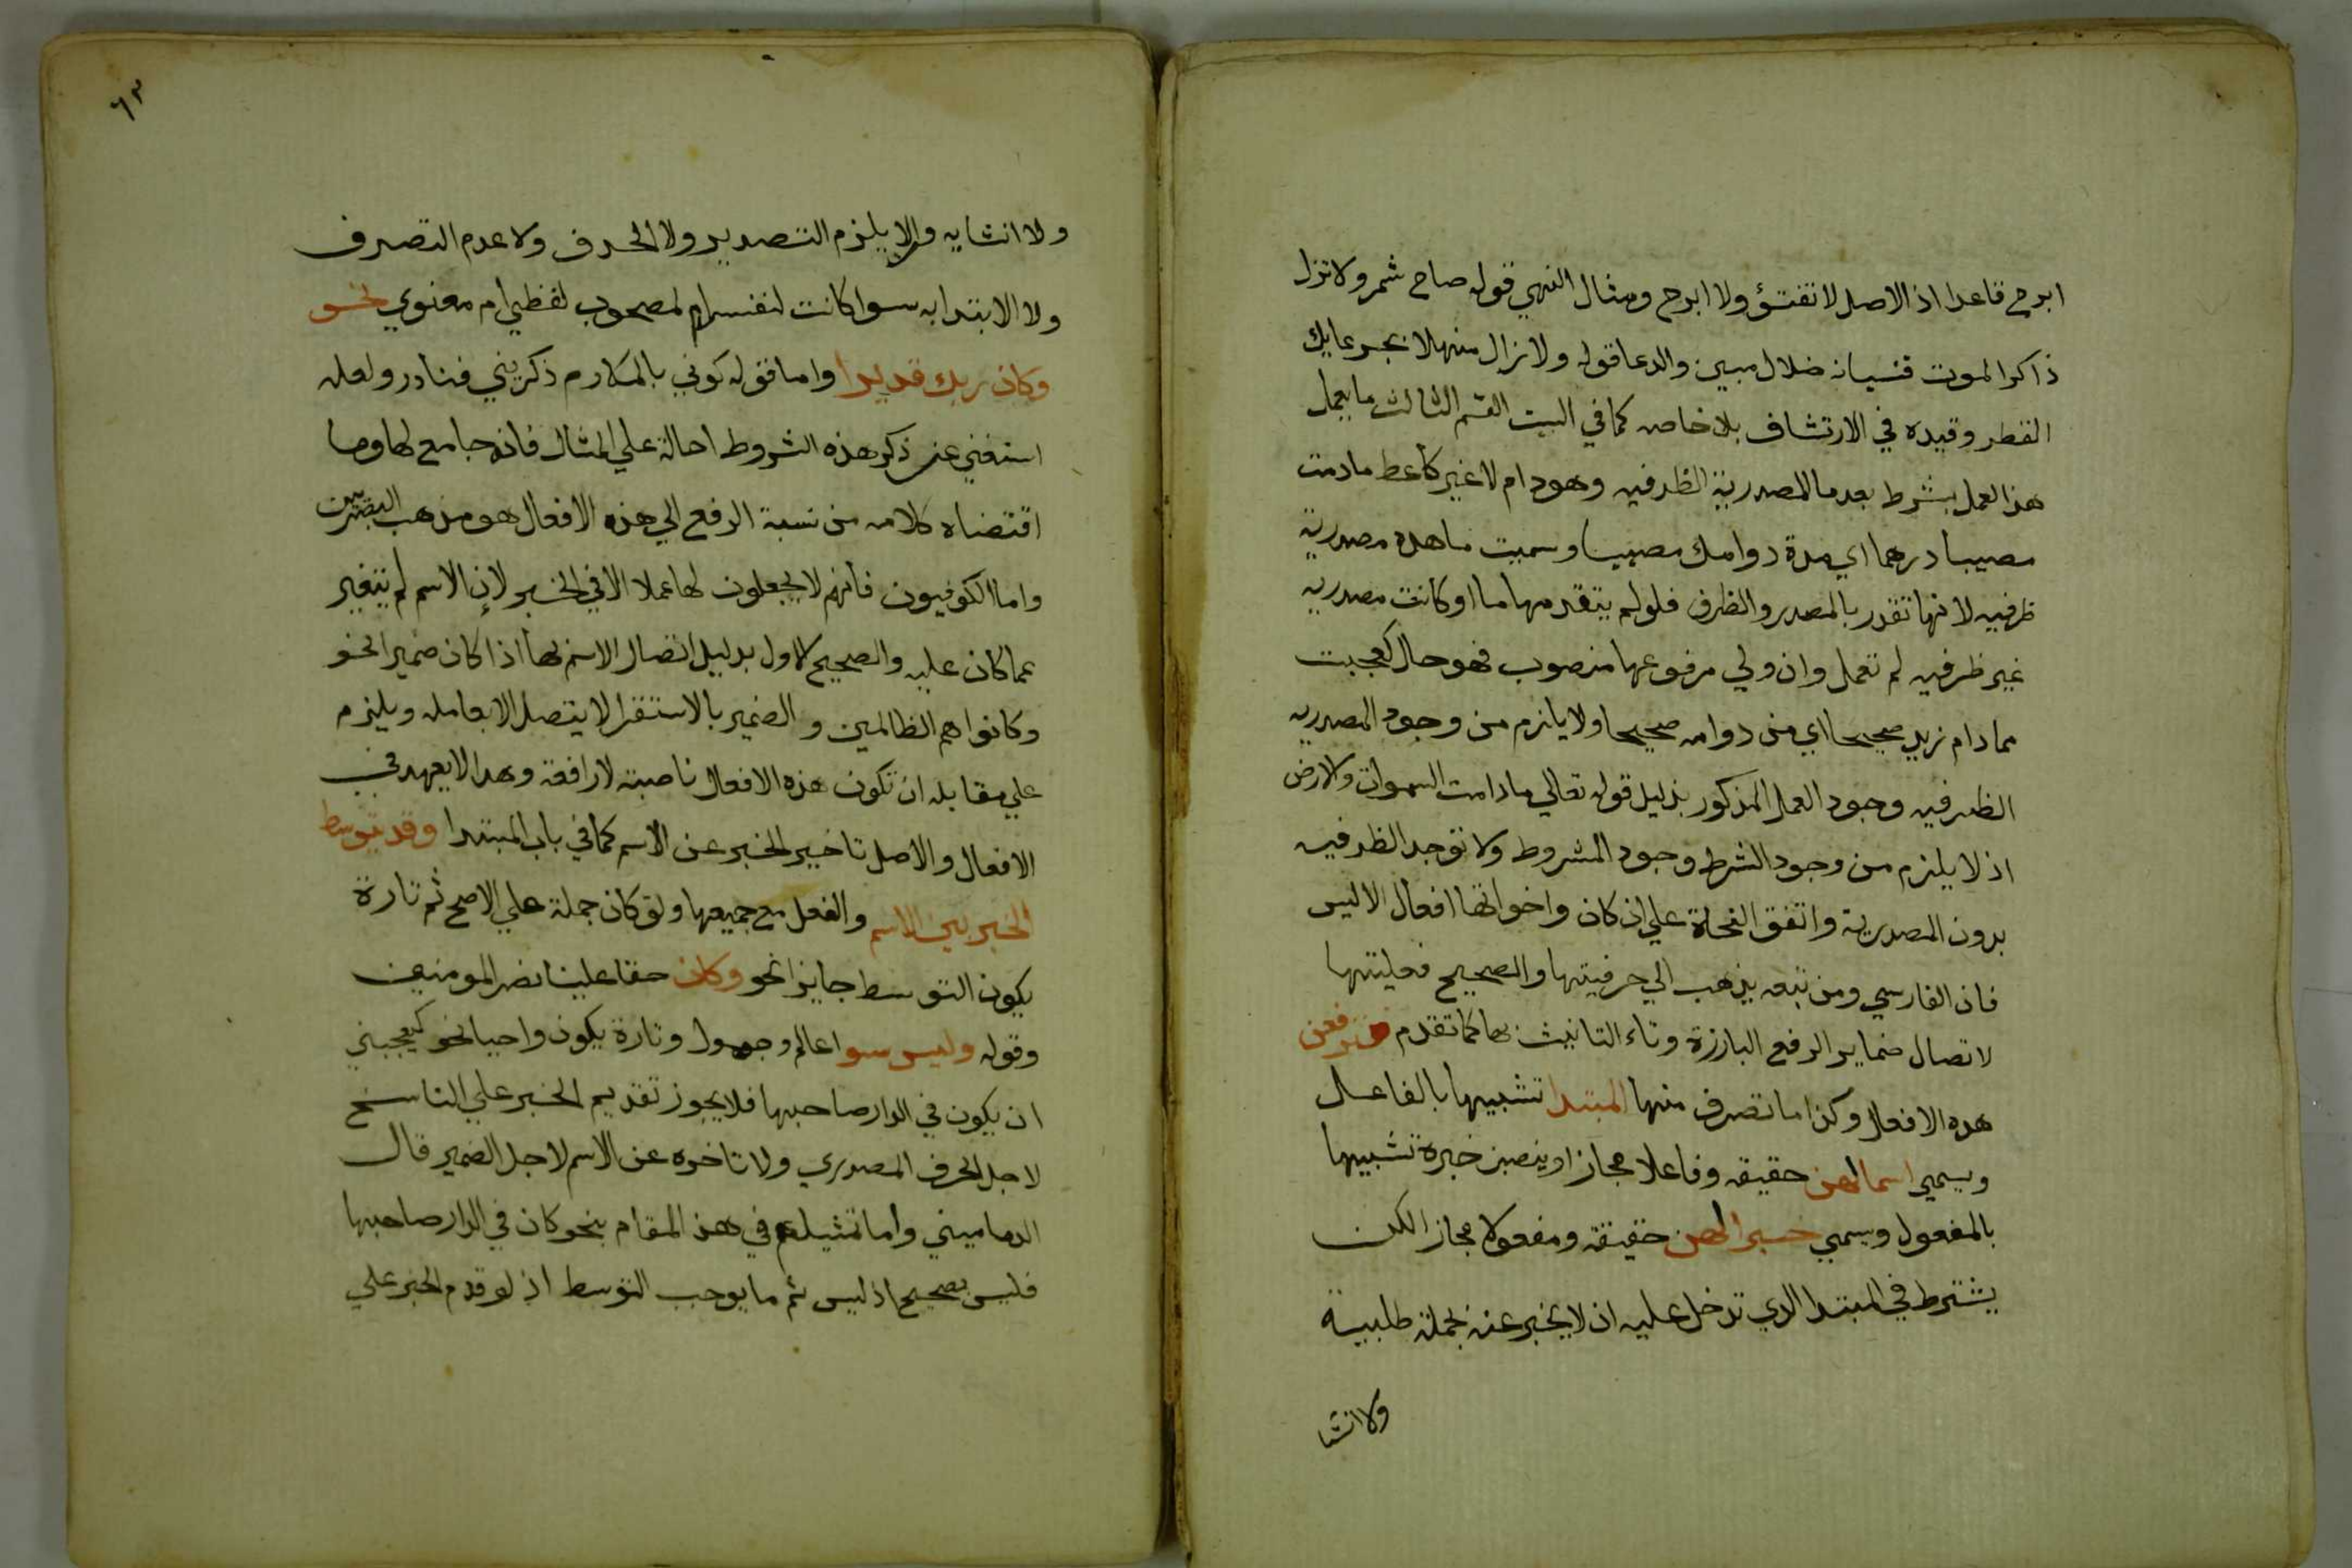 ابرح قاعدا اذ الاصل لا تفتؤ ولا ابرح ومثال النهي قوله صاح شمر ولا تزل
ذاكر الموت فنسيانه ضلال مبين والدعا قوله ولا زال منهلا بجرعايك
القطر وقيده في الارتشاف بلا خاصه كما في البيت القسم الثالث ما يعمل
هذا العمل بشرط بعد ما المصدرية الظرفيه وهو دام لا غير كاعط ما دمت
مصيبا درهما اي مدة دوامك مصيبا وسميت ما هذه مصدرية
ظرفيه لانها تقدر بالمصدر والظرف فلو لم يتقدمها ما او كانت مصدريه
غير ظرفيه لم تعمل وان ولي مرفوعها منصوب فهو حال كعجبت
مما دام زيد صحيحا اي من دوامه صحيحا ولا يلزم من وجود المصدريه
الظرفيه وجود العمل المذكور بدليل قوله تعالي ما دامت السموات والارض
اذ لا يلزم من وجود الشرط وجود المشروط ولا توجد الظرفيه
بدون المصدرية واتفق النحاة علي ان كان واخواتها افعال الا ليس
فان الفارسي ومن تبعه يذهب الي حرفيتها والصحيح فعليتها
لاتصال ضماير الرفع البارزة وتاء التانيث بها كما تقدم فترفعن
هذه الافعال وكذا ما تصرف منها المبتدا تشبيها بالفاعل
ويسمي اسما لهن حقيقه وفاعلا مجازا وينصبن خبره تشبيها
بالمفعول ويسمي خبرا لهن حقيقة ومفعولا مجازا لكن
يشترط في المبتدا الذي تدخل عليه ان لا يخبر عنه بجملة طلبية
ولا انشا
٦٣
ولا انشايه ولا يلزم التصدير ولا الحذف ولا عدم التصرف
ولا الابتدا به سوا كانت لنفسه ام لمصحوب لفظي ام معنوي نحو
وكان ربك قديرا واما قوله كوني بالمكارم ذكريني فنادر ولعله
استغني عن ذكر هذه الشروط احالة علي المثال فانه جامع لها وما
اقتضاه كلامه من نسبة الرفع الي هذه الافعال هو مذهب البصريين
واما الكوفيون فانهم لا يجعلون لها عملا الا في الخبر لان الاسم لم يتغير
عما كان عليه والصحيح الاول بدليل اتصال الاسم بها اذا كان ضميرا نحو
وكانوا هم الظالمين و الضمير بالاستقرا لا يتصل الا بعامله ويلزم
علي مقابله ان تكون هذه الافعال ناصبة لا رافعة وهذا لا يعهد في
الافعال والاصل تاخير الخبر عن الاسم كما في باب المبتدا وقد يتوسط
الخبر بين الاسم والفعل مع جميعها ولو كان جملة علي الاصح ثم تارة
يكون التوسط جايزا نحو وكان حقا علينا نصر المومنين
وقوله وليس سوا عالم وجهول وتارة يكون واجبا نحو كيعجبني
ان يكون في الدار صاحبها فلا يجوز تقديم الخبر علي الناسخ
لاجل الحرف المصدري ولا تاخره عن الاسم لاجل الضمير قال
الدماميني واما تمثيلهم في هذا المقام بنحو كان في الدار صاحبها
فليس بصحيح اذ ليس ثم ما يوجب التوسط اذ لو قدم الخبر علي